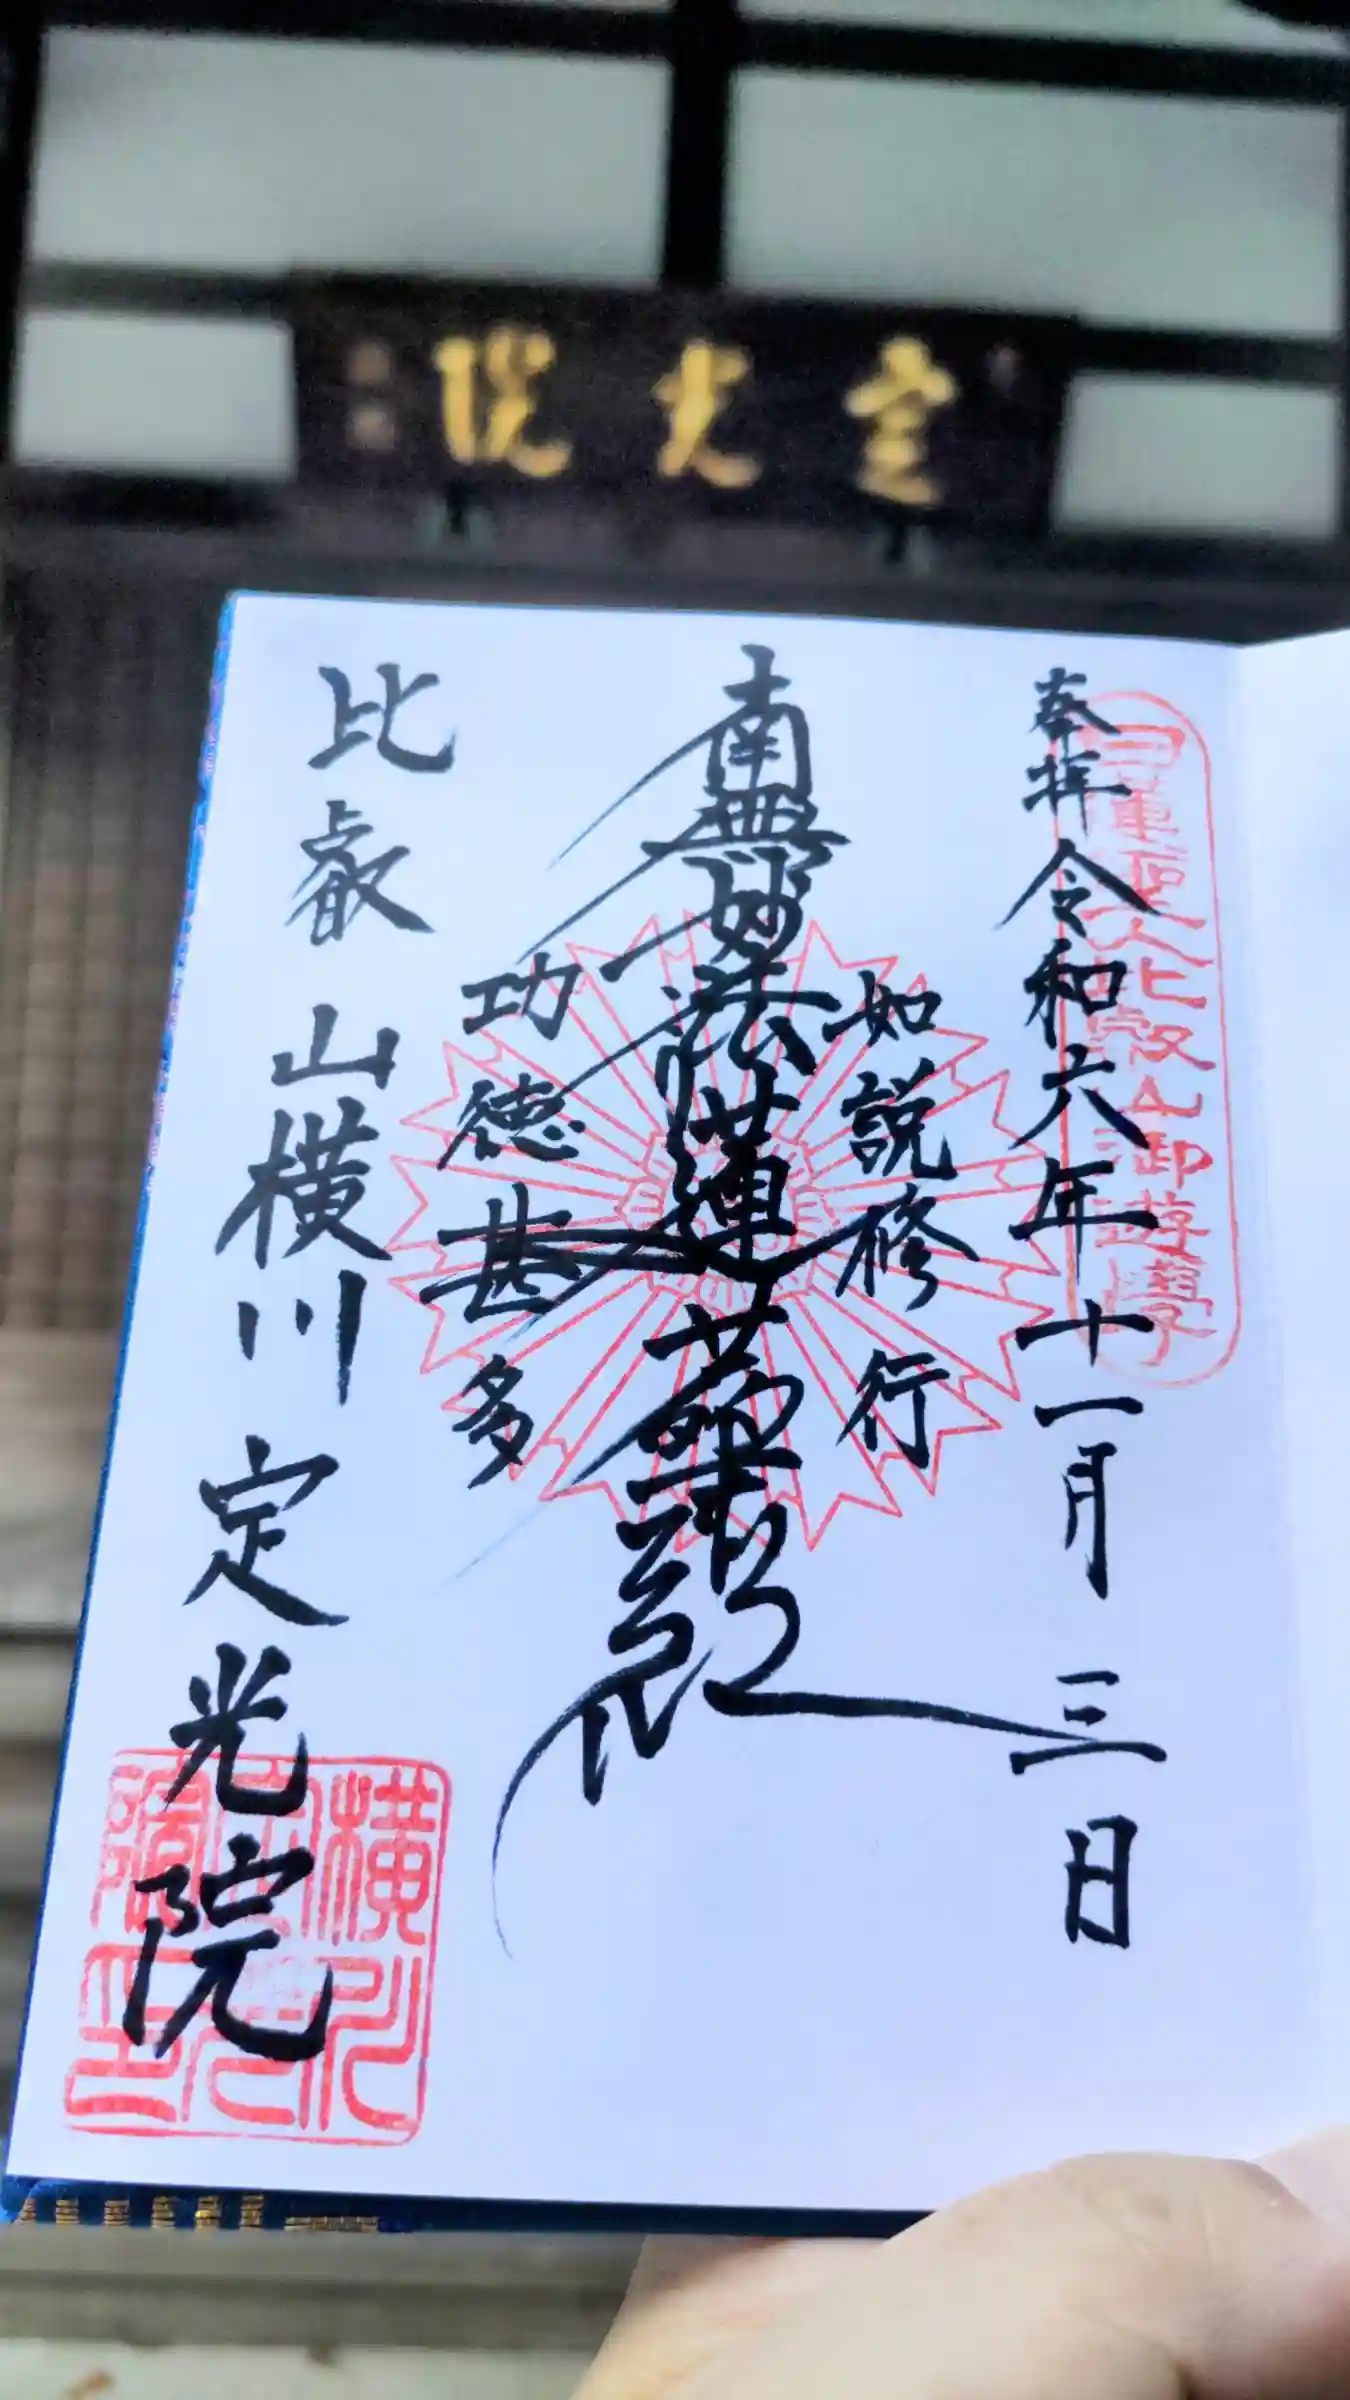 定光院
奉拝 令和六年十一月三日
日蓮聖人比叡山御遊学
如説修行
南無妙法蓮華経
功徳甚多
比叡山横川 定光院
横川定光院印